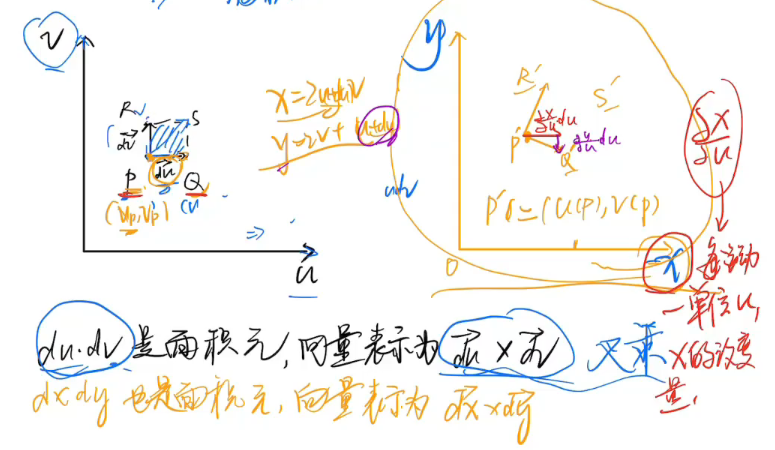 v
y
R
S
dv
du
P
Q
(up,vp)
(u
⇒
u
x=2u+v
y=2v+u+du
u+v
R'
S'
∂x/∂u du
∂y/∂u du
P'
Q'
P'(=(u(p),v(p)
0
x
∂x/∂u
每变动
一单位u,
x的改变
量,
du·dv是面积元,向量表示为du×dv
又乘
dxdy也是面积元,向量表示为dx×dy